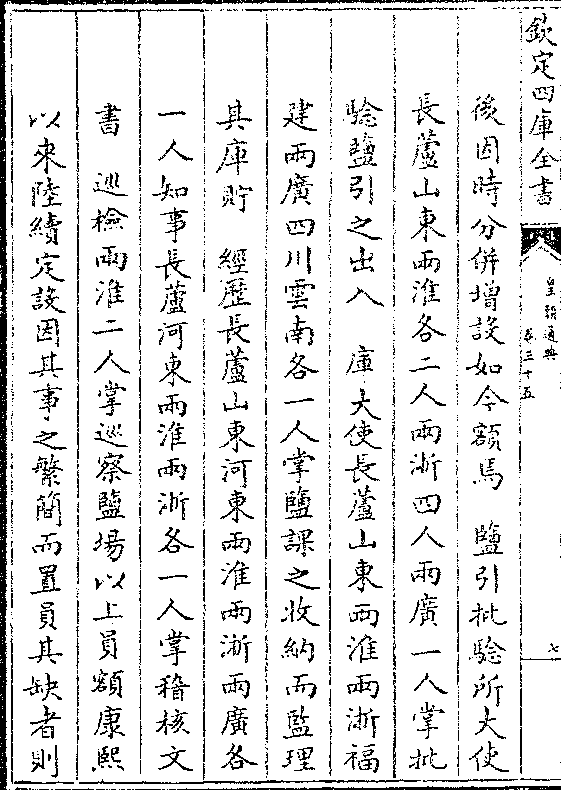 欽定四庫全書
皇朝通典
卷三十五
七
後因時分併增設如今額焉　鹽引批驗所大使
長蘆山東兩淮各二人兩浙四人兩廣一人掌批
驗鹽引之出入　庫大使長蘆山東兩淮兩浙福
建兩廣四川雲南各一人掌鹽課之收納而監理
其庫貯　經歷長蘆山東河東兩淮兩浙兩廣各
一人知事長蘆河東兩淮兩浙各一人掌稽核文
書　巡檢兩淮二人掌巡察鹽場以上員額康熙
以來陸續定設因其事之繁簡而置員其缺者則